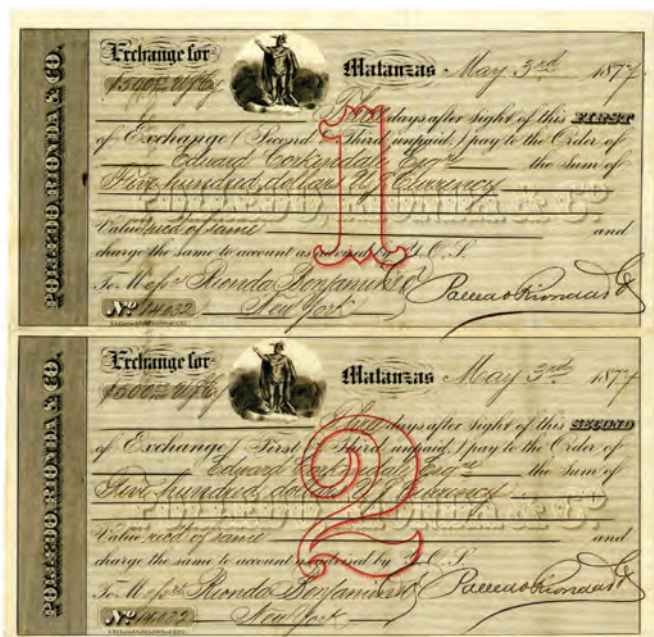 POLLEDO RIONDA & CO.
Exchange for
$500 00/100 U/Cy
Matanzas May 3rd 1877
Three days after Sight of this FIRST
of Exchange (Second & Third unpaid) pay to the Order of
Edward Corkindale Esqre the Sum of
Five hundred dollars U S Currency
POLLEDO, RIONDA & Co
Value recd of same and
charge the same to account as advised by Y. O. S.
To Messrs Rionda Benjamin & Co
Nº 14032 New York
Polledo Rionda & Co
1
POLLEDO RIONDA & CO.
Exchange for
$500 00/100 U/Cy
Matanzas May 3rd 1877
Three days after Sight of this SECOND
of Exchange (First & Third unpaid) pay to the Order of
Edward Corkindale Esqre the Sum of
Five hundred dollars U S Currency
POLLEDO, RIONDA & Co
Value recd of same and
charge the same to account as advised by Y. O. S.
To Messrs Rionda Benjamin & Co
Nº 14032 New York
Polledo Rionda & Co
2